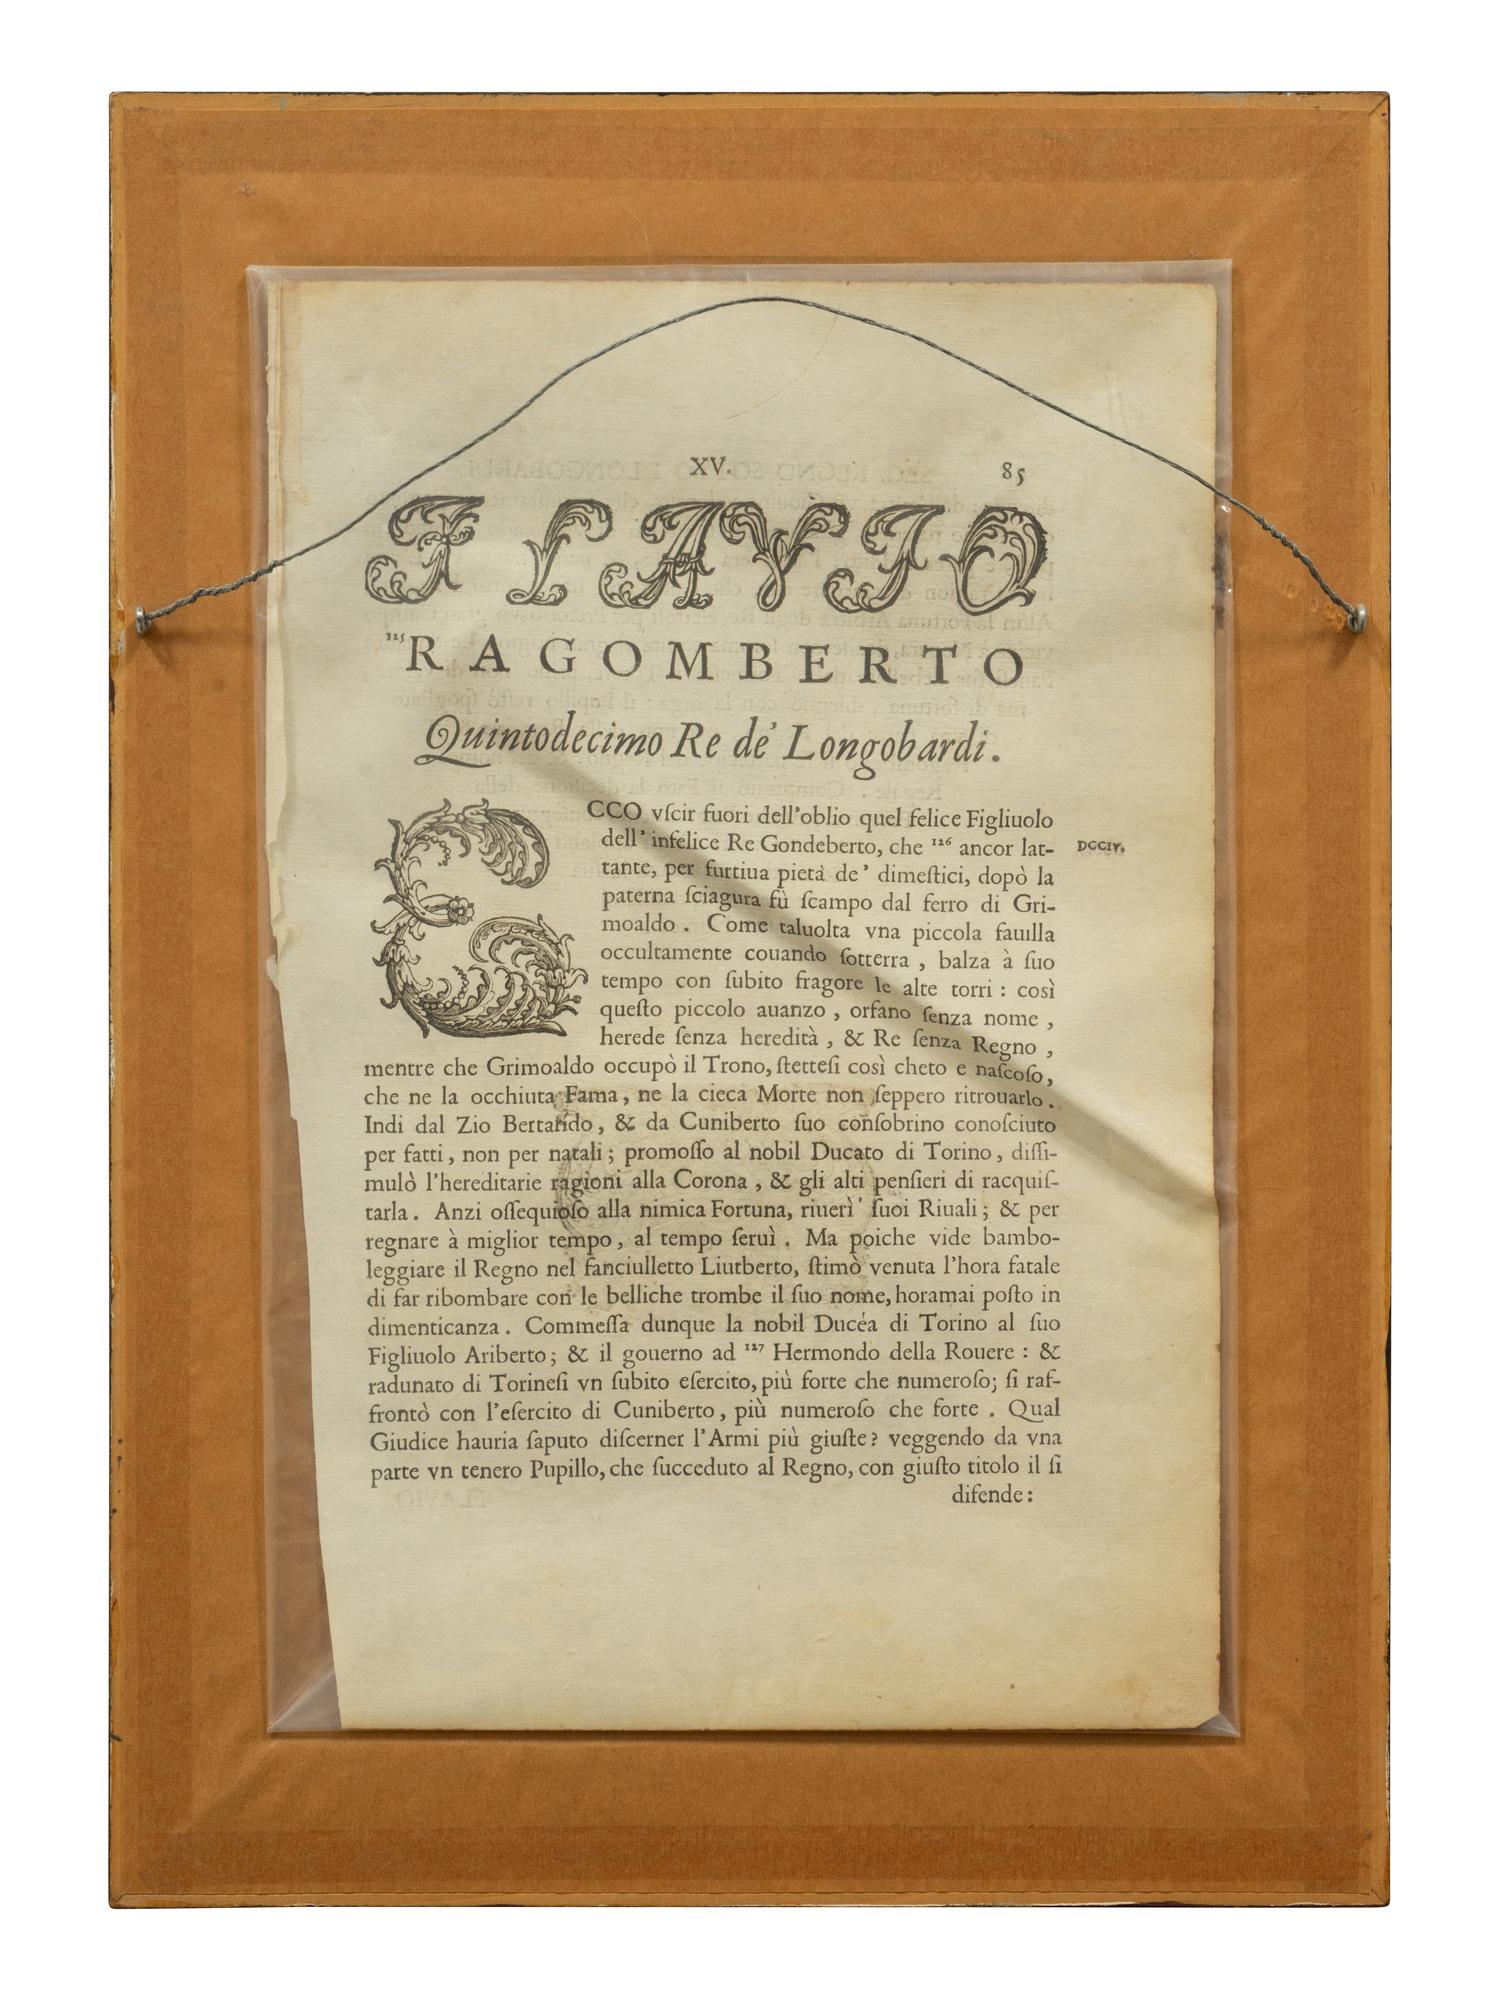 XV. 85
FLAVIO
¹²⁵RAGOMBERTO
Quintodecimo Re de' Longobardi.
ECCO vſcir fuori dell'oblio quel felice Figliuolo
dell' infelice Re Gondeberto, che ¹²⁶ ancor lat- DCCIV.
tante, per furtiua pietà de' dimeſtici, dopò la
paterna ſciagura fù ſcampo dal ferro di Gri-
moaldo. Come taluolta vna piccola fauilla
occultamente couando ſotterra, balza à ſuo
tempo con ſubito fragore le alte torri: così
queſto piccolo auanzo, orfano ſenza nome,
herede ſenza heredità, & Re ſenza Regno,
mentre che Grimoaldo occupò il Trono, ſtetteſi così cheto e naſcoſo,
che ne la occhiuta Fama, ne la cieca Morte non ſeppero ritrouarlo.
Indi dal Zio Bertarido, & da Cuniberto ſuo conſobrino conoſciuto
per fatti, non per natali; promoſſo al nobil Ducato di Torino, diſſi-
mulò l'hereditarie ragioni alla Corona, & gli alti penſieri di racquiſ-
tarla. Anzi oſſequioſo alla nimica Fortuna, riuerì' ſuoi Riuali; & per
regnare à miglior tempo, al tempo ſeruì. Ma poiche vide bambo-
leggiare il Regno nel fanciulletto Liutberto, ſtimò venuta l'hora fatale
di far ribombare con le belliche trombe il ſuo nome, horamai poſto in
dimenticanza. Commeſſa dunque la nobil Ducéa di Torino al ſuo
Figliuolo Ariberto; & il gouerno ad ¹²⁷ Hermondo della Rouere: &
radunato di Torineſi vn ſubito eſercito, più forte che numeroſo; ſi raf-
frontò con l'eſercito di Cuniberto, più numeroſo che forte. Qual
Giudice hauria ſaputo diſcerner l'Armi più giuſte? veggendo da vna
parte vn tenero Pupillo, che ſucceduto al Regno, con giuſto titolo il ſi
difende: